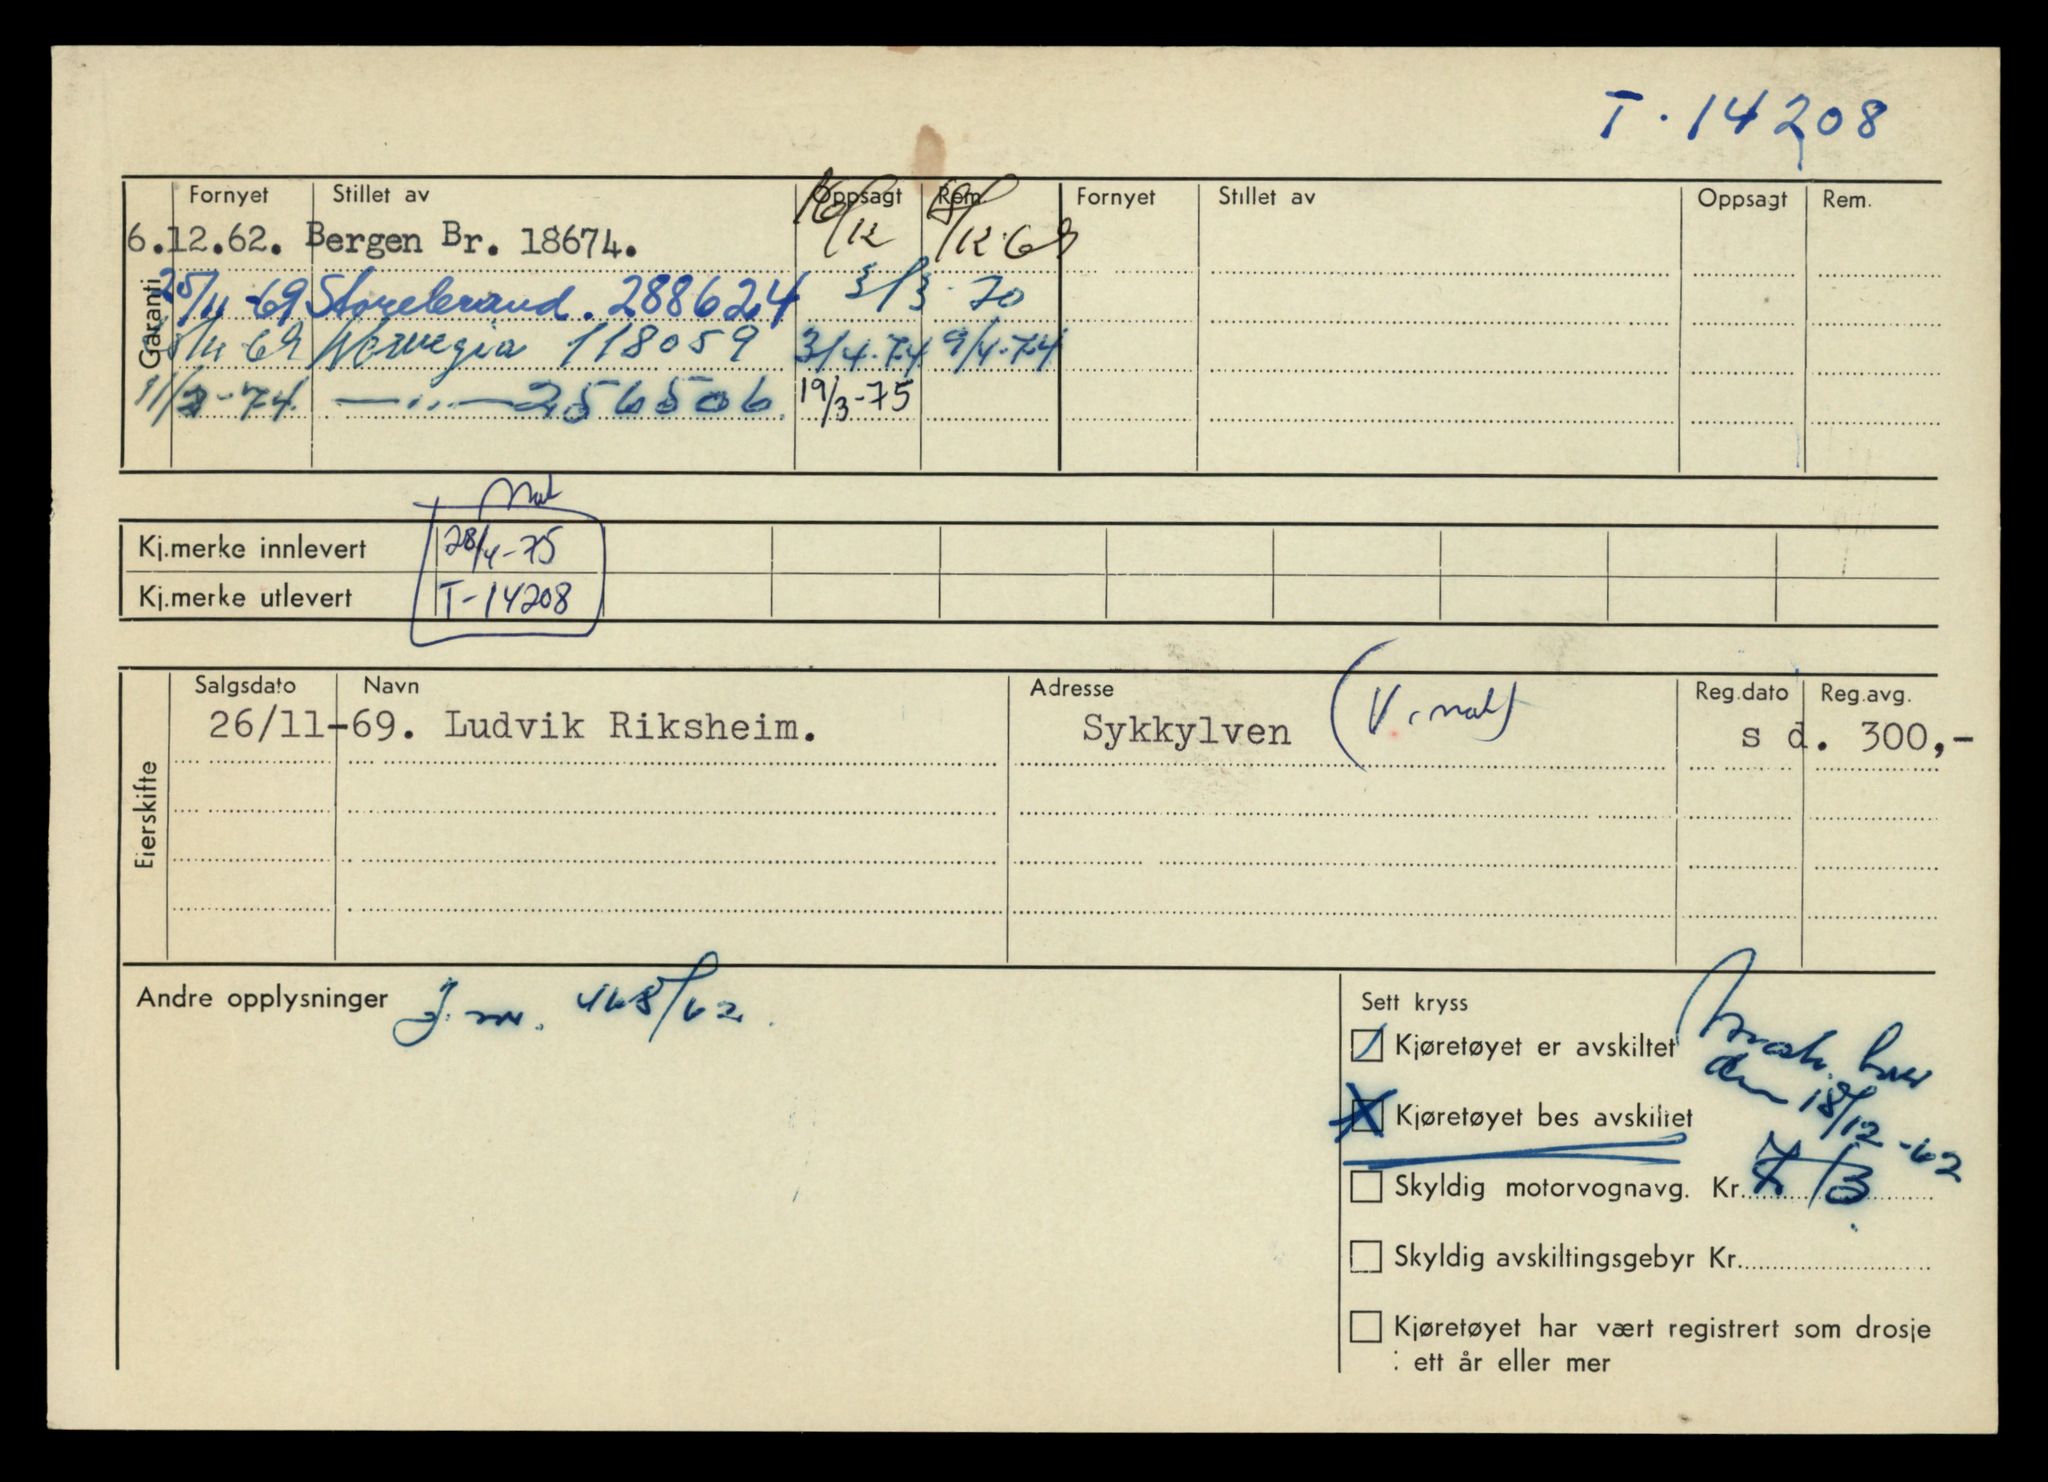 T. 14208
Fornyet Stillet av Oppsagt Rem. Fornyet Stillet av Oppsagt Rem.
Garanti
6.12.62. Bergen Br. 18674. 16/12 18/12-69
25/11-69 Storebrand. 288624 3/3-70
25/11-69 Norvegia 118059 3/4-74 9/4-74
11/2-74. —..— 256506 19/3-75
Kj.merke innlevert 28/4-75
Kj.merke utlevert T-14208
Eierskifte
Salgsdato Navn Adresse Reg.dato Reg.avg.
26/11-69. Ludvik Riksheim. Sykkylven s d. 300,-
Andre opplysninger J.nr. 468/62.
Sett kryss
Kjøretøyet er avskiltet
den 18/12-62
Kjøretøyet bes avskiltet
Skyldig motorvognavg. Kr. 7/3
Skyldig avskiltingsgebyr Kr.
Kjøretøyet har vært registrert som drosje
: ett år eller mer